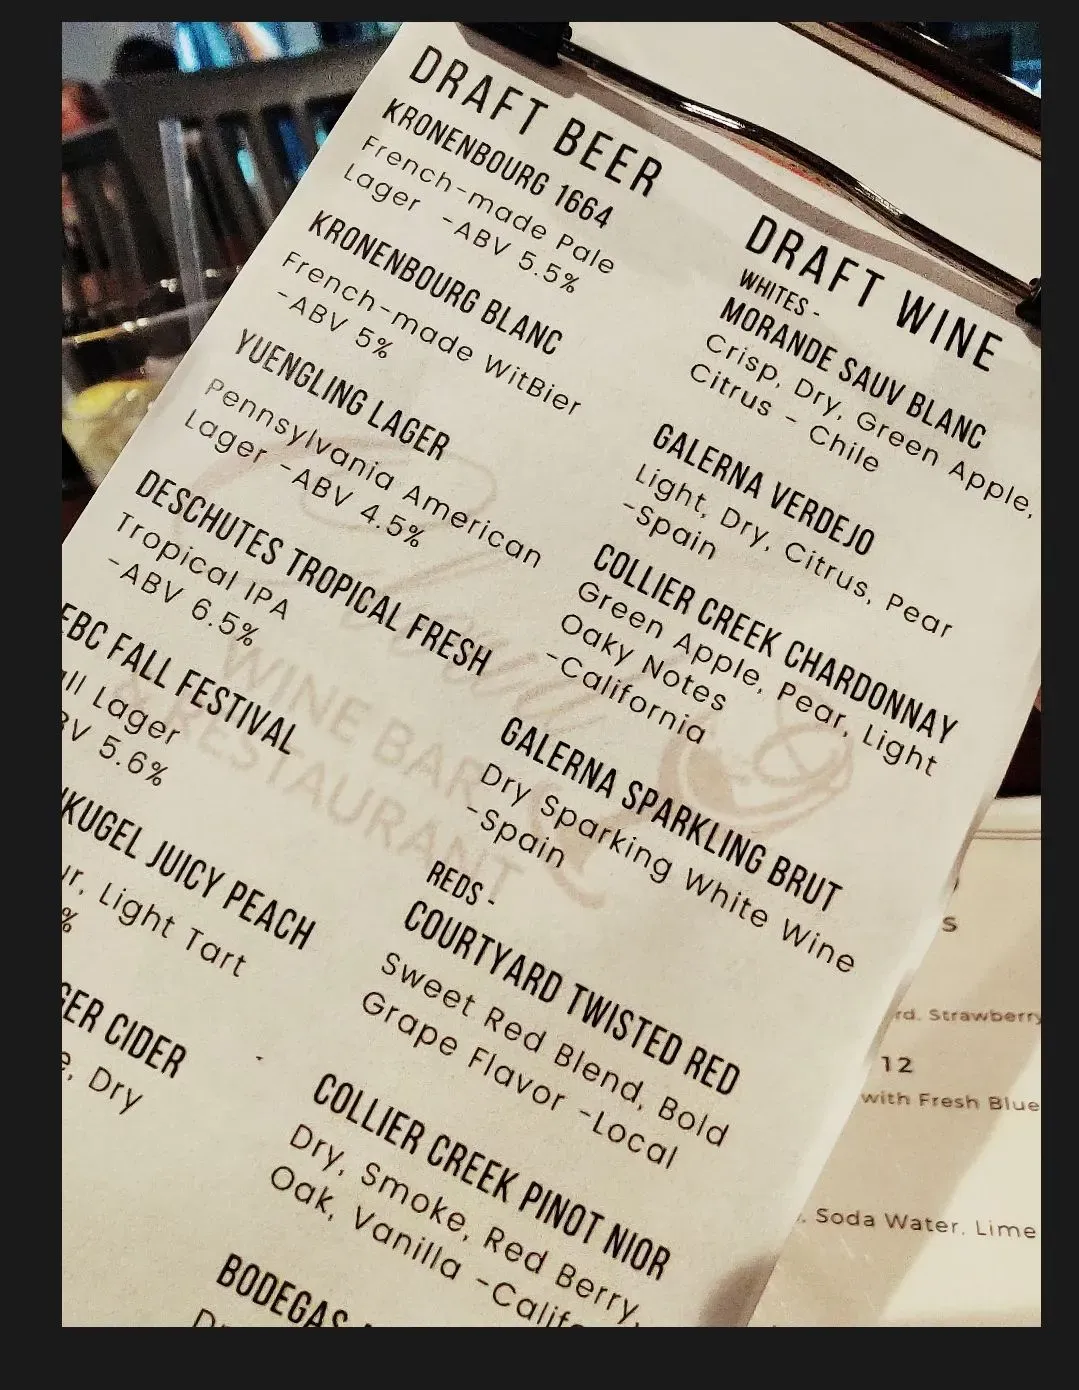 DRAFT BEER
KRONENBOURG 1664
French-made Pale
Lager -ABV 5.5%
KRONENBOURG BLANC
French-made WitBier
-ABV 5%
YUENGLING LAGER
Pennsylvania American
Lager -ABV 4.5%
DESCHUTES TROPICAL FRESH
Tropical IPA
-ABV 6.5%
EBC FALL FESTIVAL
Lager
5.6%
JUICY PEACH
Light Tart
%
CIDER
Dry
DRAFT WINE
WHITES -
MORANDE SAUV BLANC
Crisp, Dry, Green Apple,
Citrus - Chile
GALERNA VERDEJO
Light, Dry, Citrus, Pear
-Spain
COLLIER CREEK CHARDONNAY
Green Apple, Pear, Light
Oaky Notes
-California
GALERNA SPARKLING BRUT
Dry Sparking White Wine
-Spain
REDS -
COURTYARD TWISTED RED
Sweet Red Blend, Bold
Grape Flavor -Local
COLLIER CREEK PINOT NIOR
Dry, Smoke, Red Berry,
Oak, Vanilla
BODEGAS
WINE BAR
& RESTAURANT
Strawberry
12
with Fresh
Soda Water, Lime